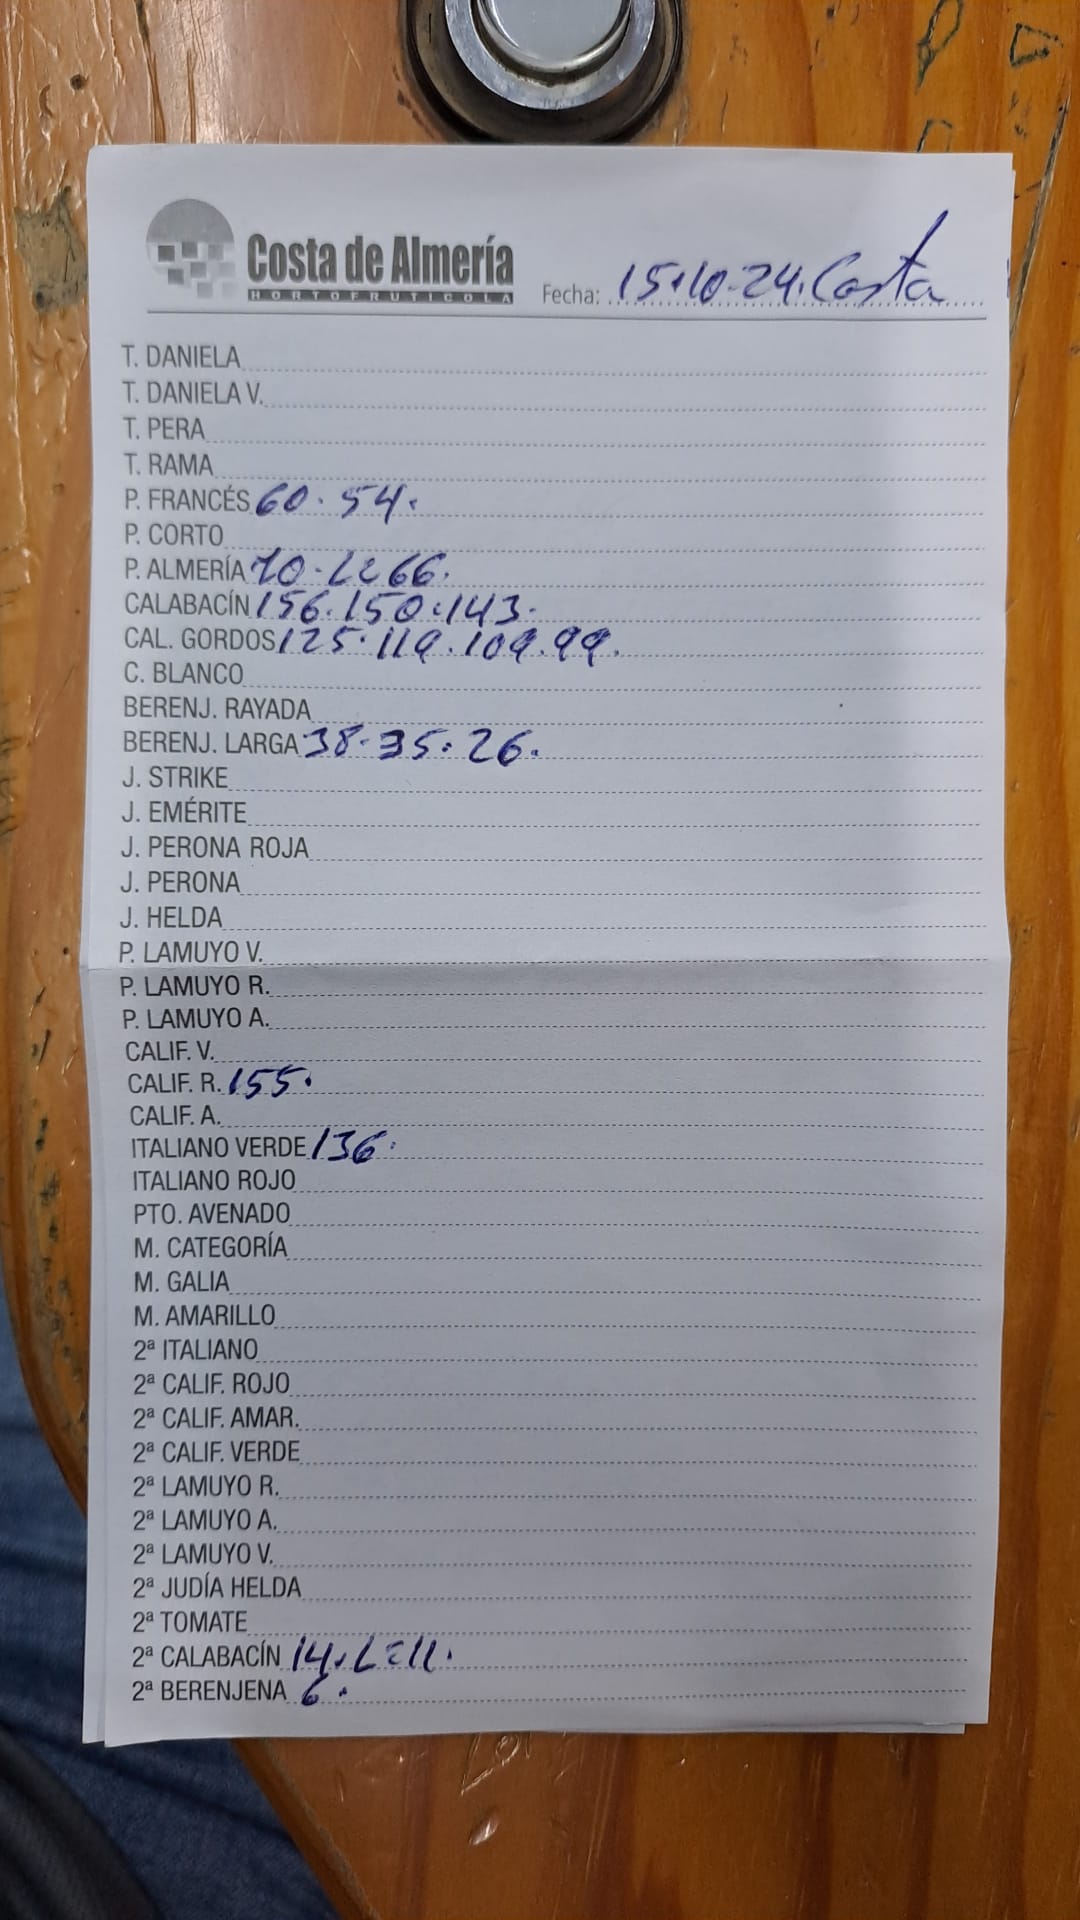 Costa de Almería
HORTOFRUTICOLA
Fecha: 15.10.24. Costa
T. DANIELA
T. DANIELA V.
T. PERA
T. RAMA
P. FRANCÉS 60. 54.
P. CORTO
P. ALMERÍA 70. L= 66.
CALABACÍN 156. 150. 143.
CAL. GORDOS 125. 119. 109. 99.
C. BLANCO
BERENJ. RAYADA
BERENJ. LARGA 38. 35. 26.
J. STRIKE
J. EMÉRITE
J. PERONA ROJA
J. PERONA
J. HELDA
P. LAMUYO V.
P. LAMUYO R.
P. LAMUYO A.
CALIF. V.
CALIF. R. 155.
CALIF. A.
ITALIANO VERDE 136.
ITALIANO ROJO
PTO. AVENADO
M. CATEGORÍA
M. GALIA
M. AMARILLO
2ª ITALIANO
2ª CALIF. ROJO
2ª CALIF. AMAR.
2ª CALIF. VERDE
2ª LAMUYO R.
2ª LAMUYO A.
2ª LAMUYO V.
2ª JUDÍA HELDA
2ª TOMATE
2ª CALABACÍN 14. L= 11.
2ª BERENJENA 6.